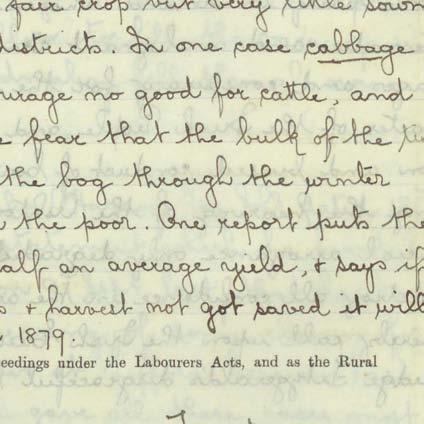 fair crop but very little sown
districts. In one case cabbage
no good for cattle, and
fear that the bulk of the
the bog through the winter
the poor. One report puts the
half an average yield, & says if
& harvest not got saved it will
1879.
eedings under the Labourers Acts, and as the Rural